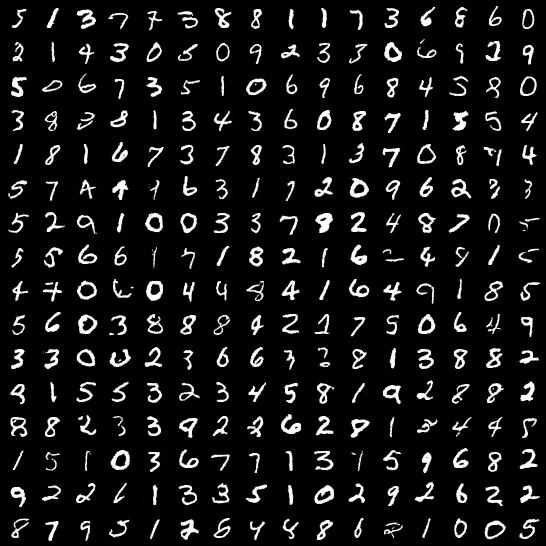 5 1 3 7 7 3 8 8 1 1 7 3 6 8 6 0
2 1 4 3 0 5 0 9 2 3 3 0 6 9 2 9
5 0 6 7 3 5 1 0 6 9 6 8 4 5 8 0
3 8 3 8 1 3 4 3 6 0 8 7 1 5 5 4
1 8 1 6 7 3 7 8 3 1 3 7 0 8 9 4
5 7 4 9 9 6 3 1 7 2 0 9 6 2 3 3
5 2 9 1 0 0 3 3 7 8 2 4 8 7 0 5
5 5 6 6 1 7 1 8 2 1 6 2 4 8 1 5
4 7 0 6 0 4 4 8 4 1 6 4 9 1 8 5
5 6 0 3 8 8 8 9 2 1 7 5 0 6 4 9
3 3 0 0 2 3 6 6 3 3 8 1 3 8 8 2
9 1 5 5 3 2 3 4 5 8 1 9 2 8 8 2
8 8 2 3 3 9 2 2 6 2 8 1 3 4 4 5
1 5 1 0 3 6 7 7 1 3 1 5 9 6 8 2
9 2 2 6 1 3 3 5 1 0 2 9 2 6 2 2
8 7 9 5 1 2 6 4 4 8 6 2 1 0 0 5